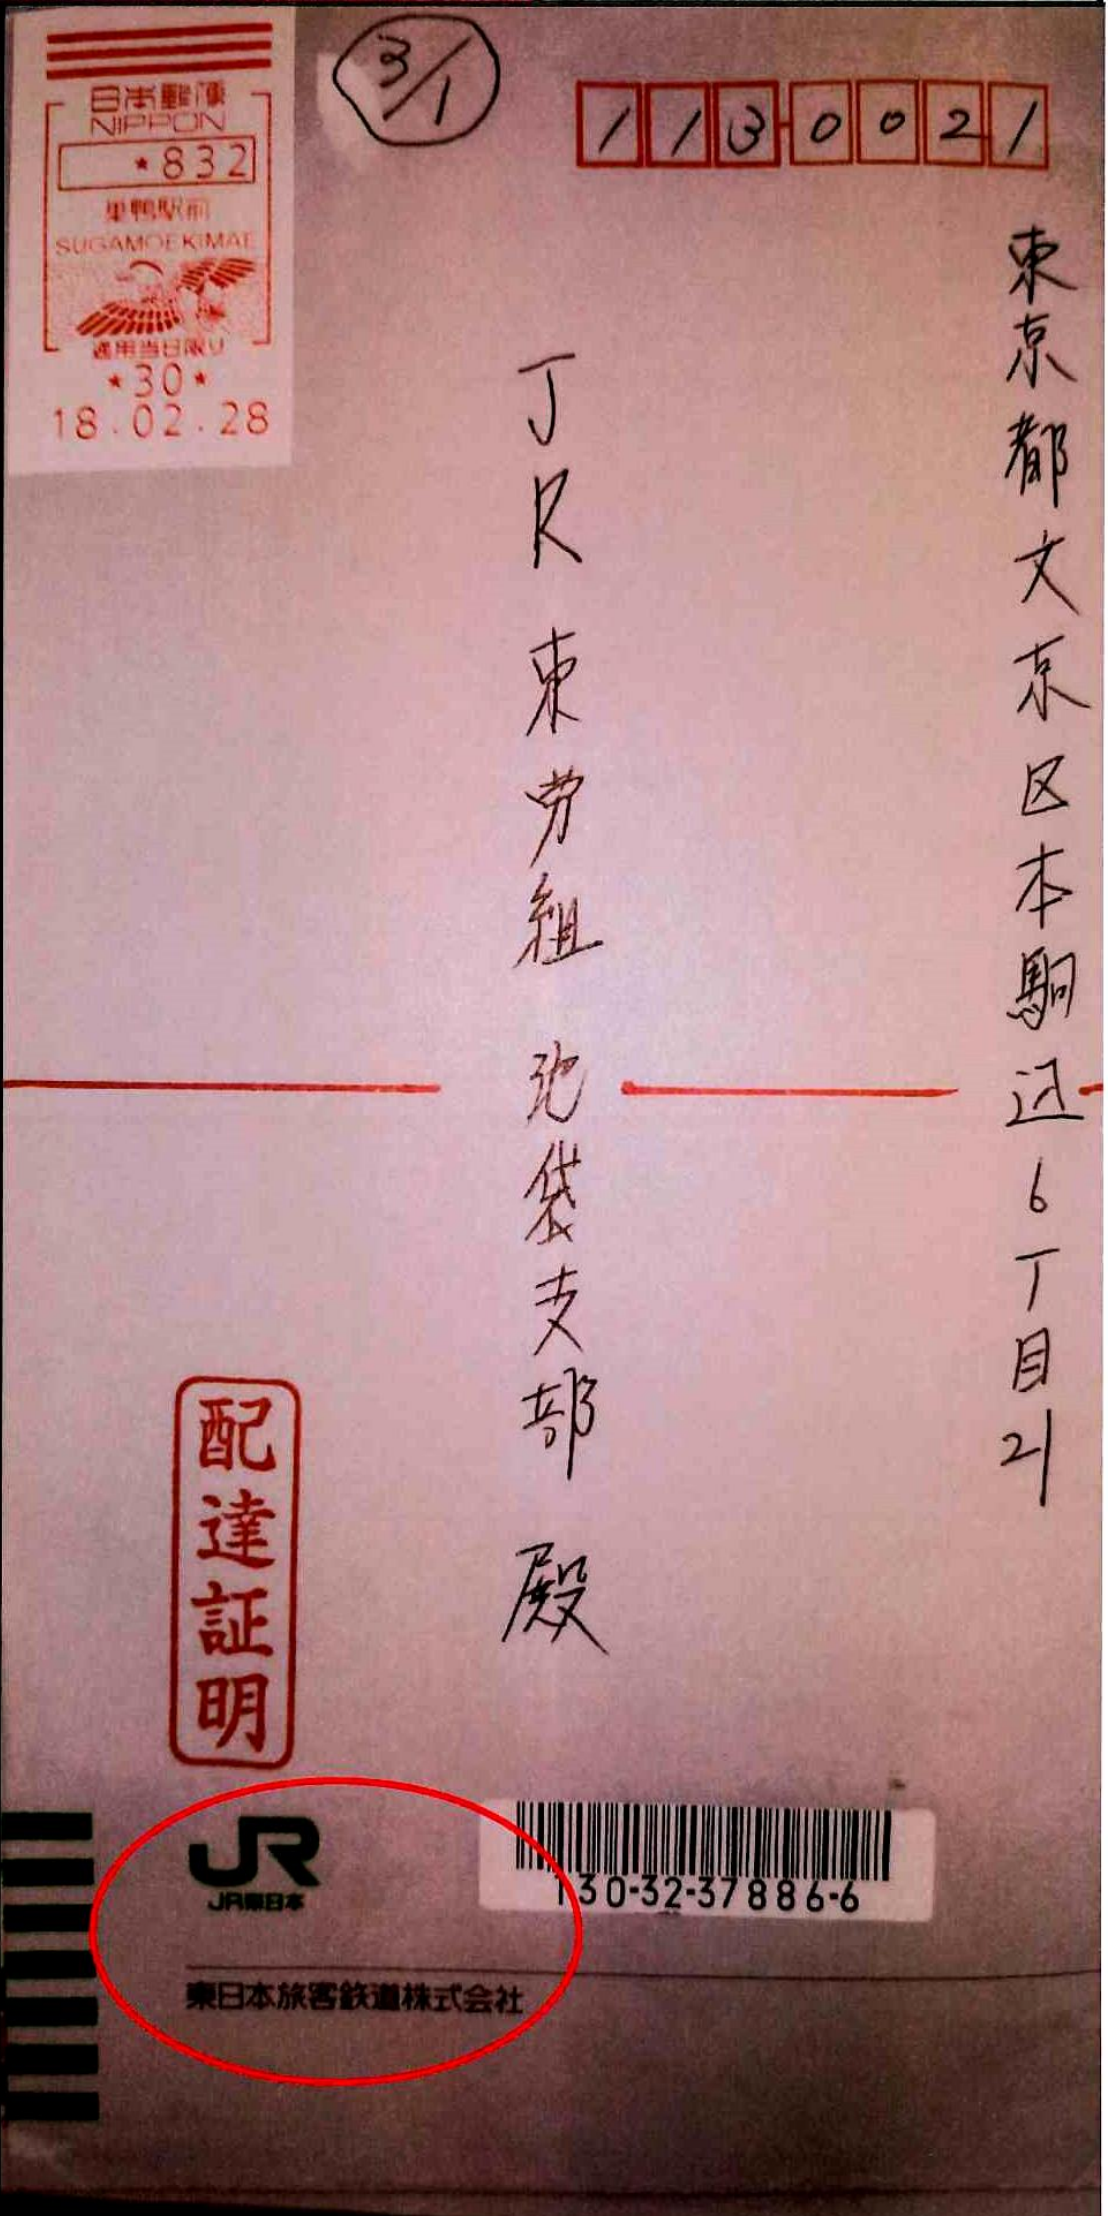 日本郵便
NIPPON
*832
巣鴨駅前
SUGAMOEKIMAE
適用当日限り
*30*
18.02.28
3/1
1130021
東京都文京区本駒込6丁目21
JR東労組 池袋支部 殿
配達証明
JR
JR東日本
130-32-37886-6
東日本旅客鉄道株式会社